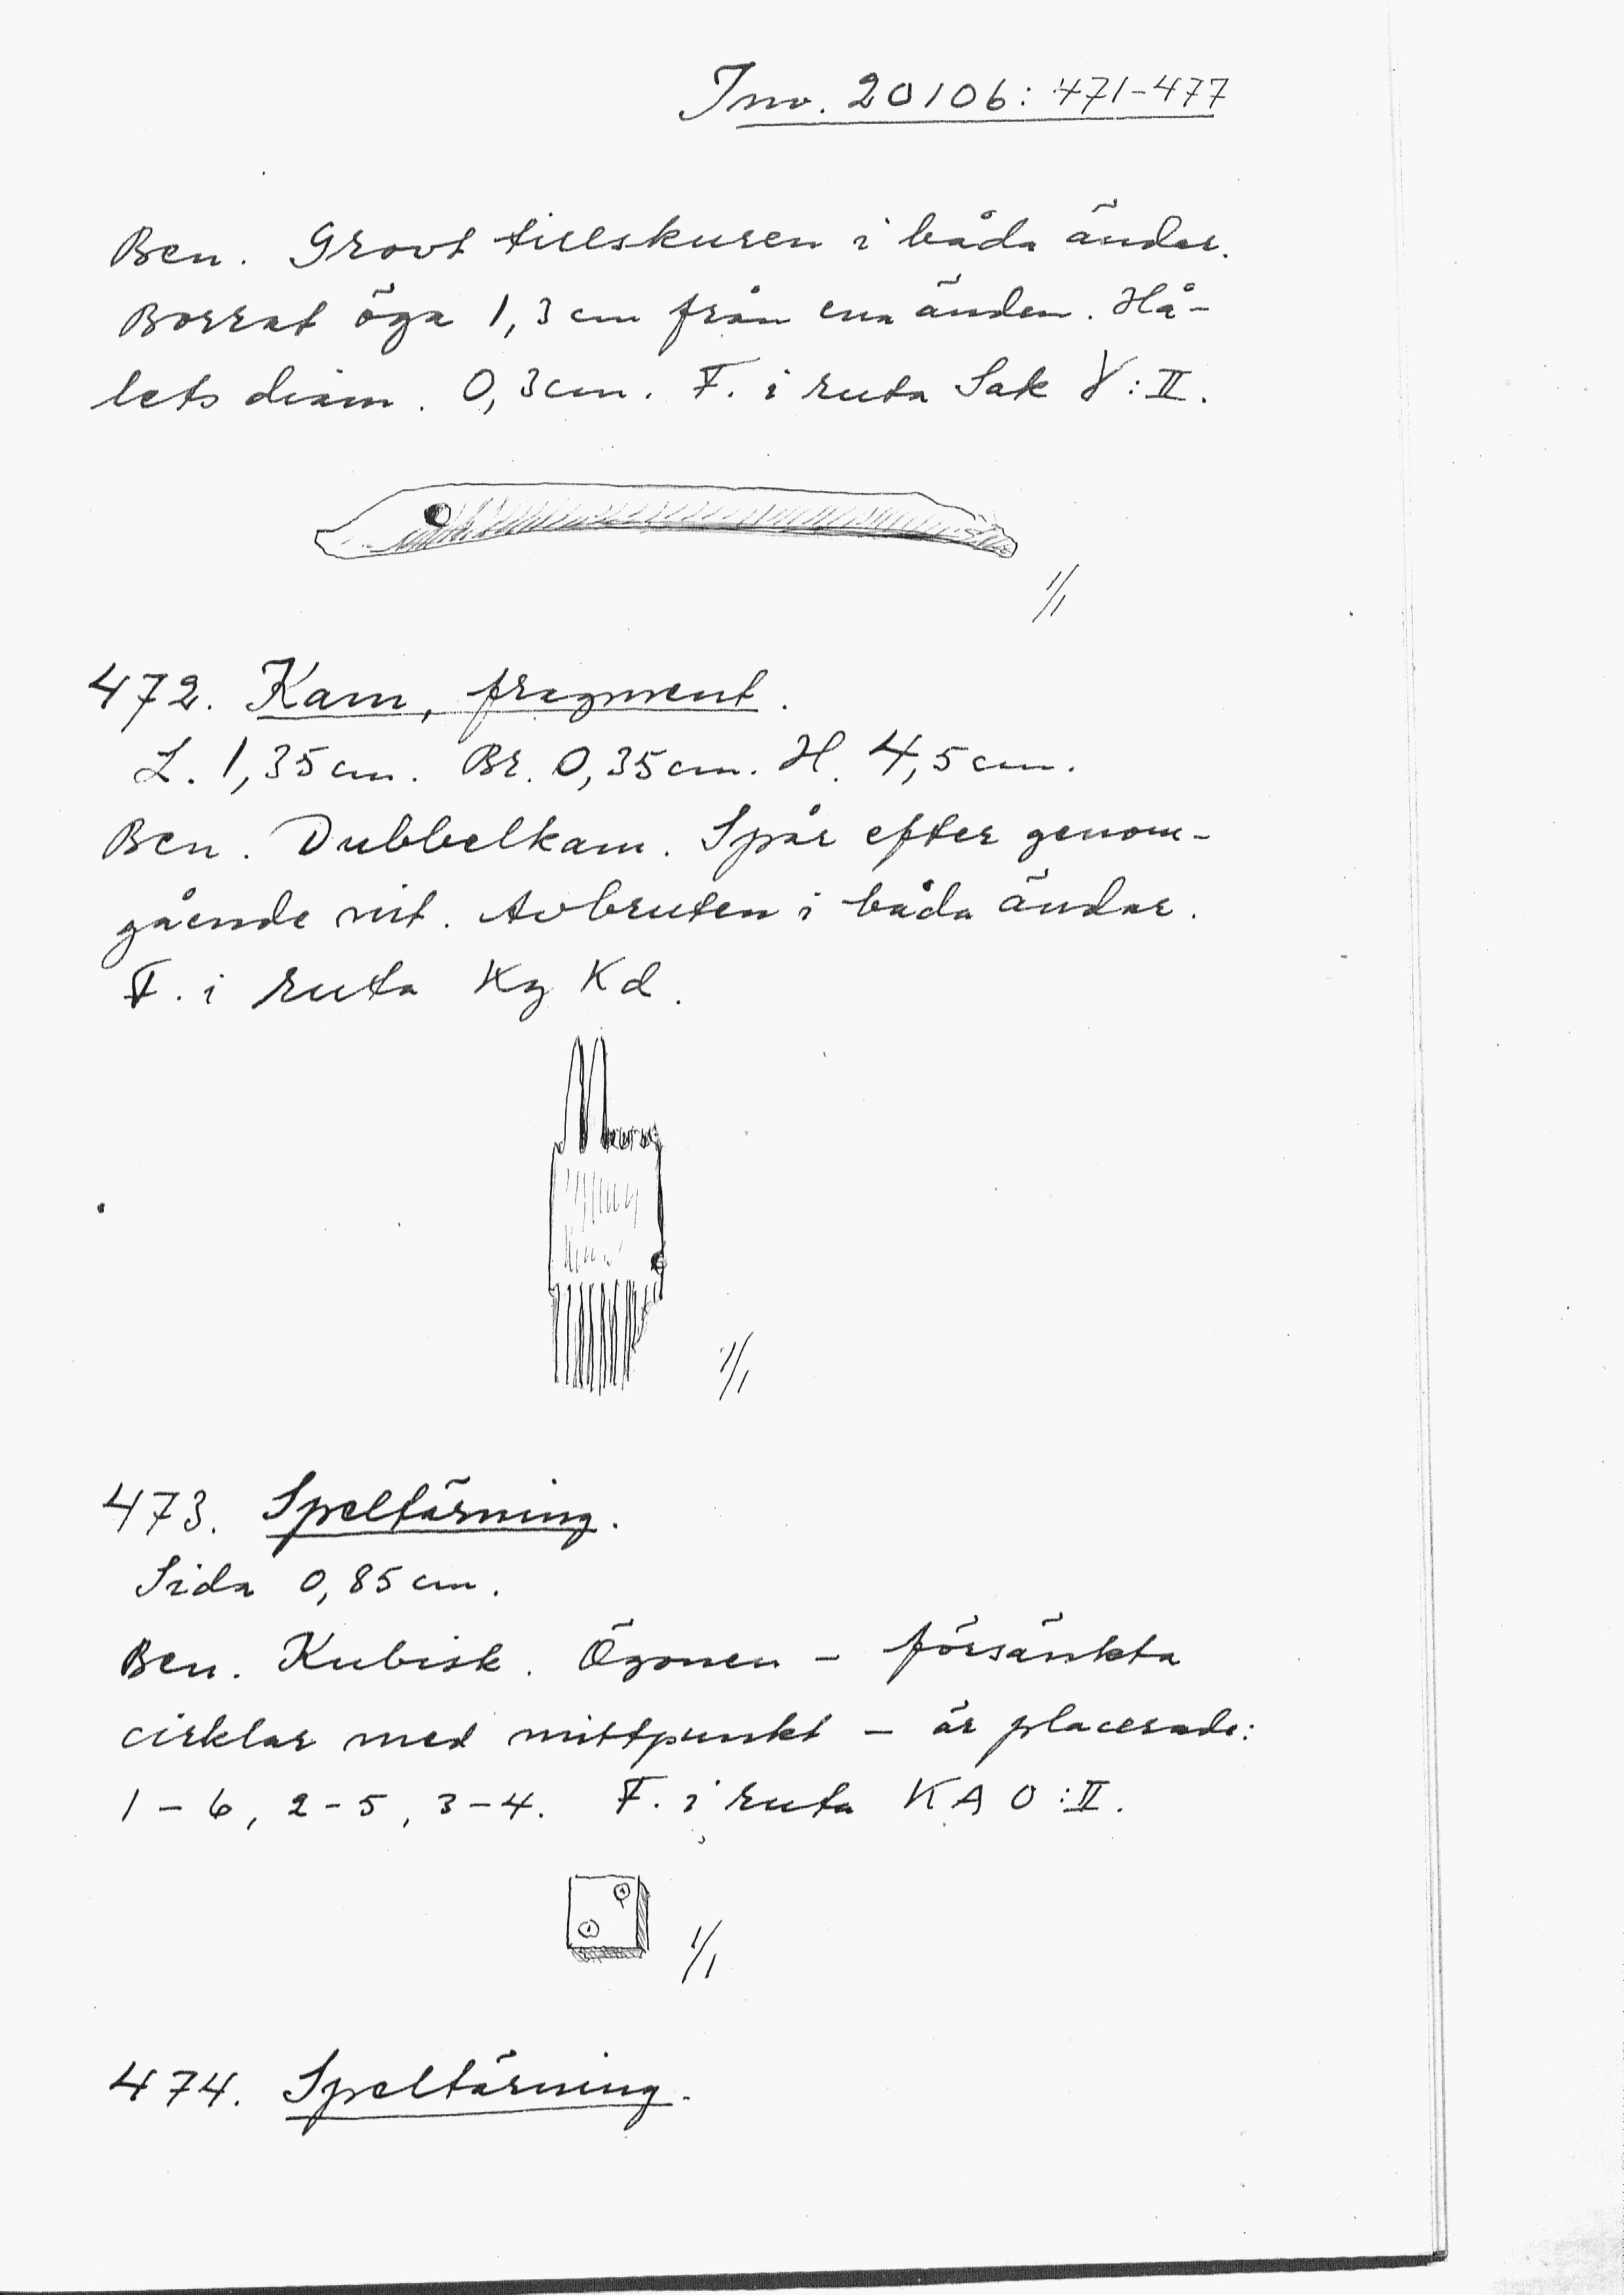 Inv. 20106: 471-477
Ben. Grovt tillskuren i båda ändar.
Borrat öga 1,3 cm från ena änden. Hå-
lets diam. 0,3 cm. F. i ruta Sak γ:II.
1/1
472. Kam, fragment.
L. 1,35 cm. Br. 0,35 cm. H. 4,5 cm.
Ben. Dubbelkam. Spår efter genom-
gående nit. Avbruten i båda ändar.
F. i ruta Kd.
1/1
473. Speltärning.
Sida 0,85 cm.
Ben. Kubisk. Ögonen - försänkta
cirklar med mittpunkt - är placerade:
1-6, 2-5, 3-4. F. i ruta KAO:II.
1/1
474. Speltärning.